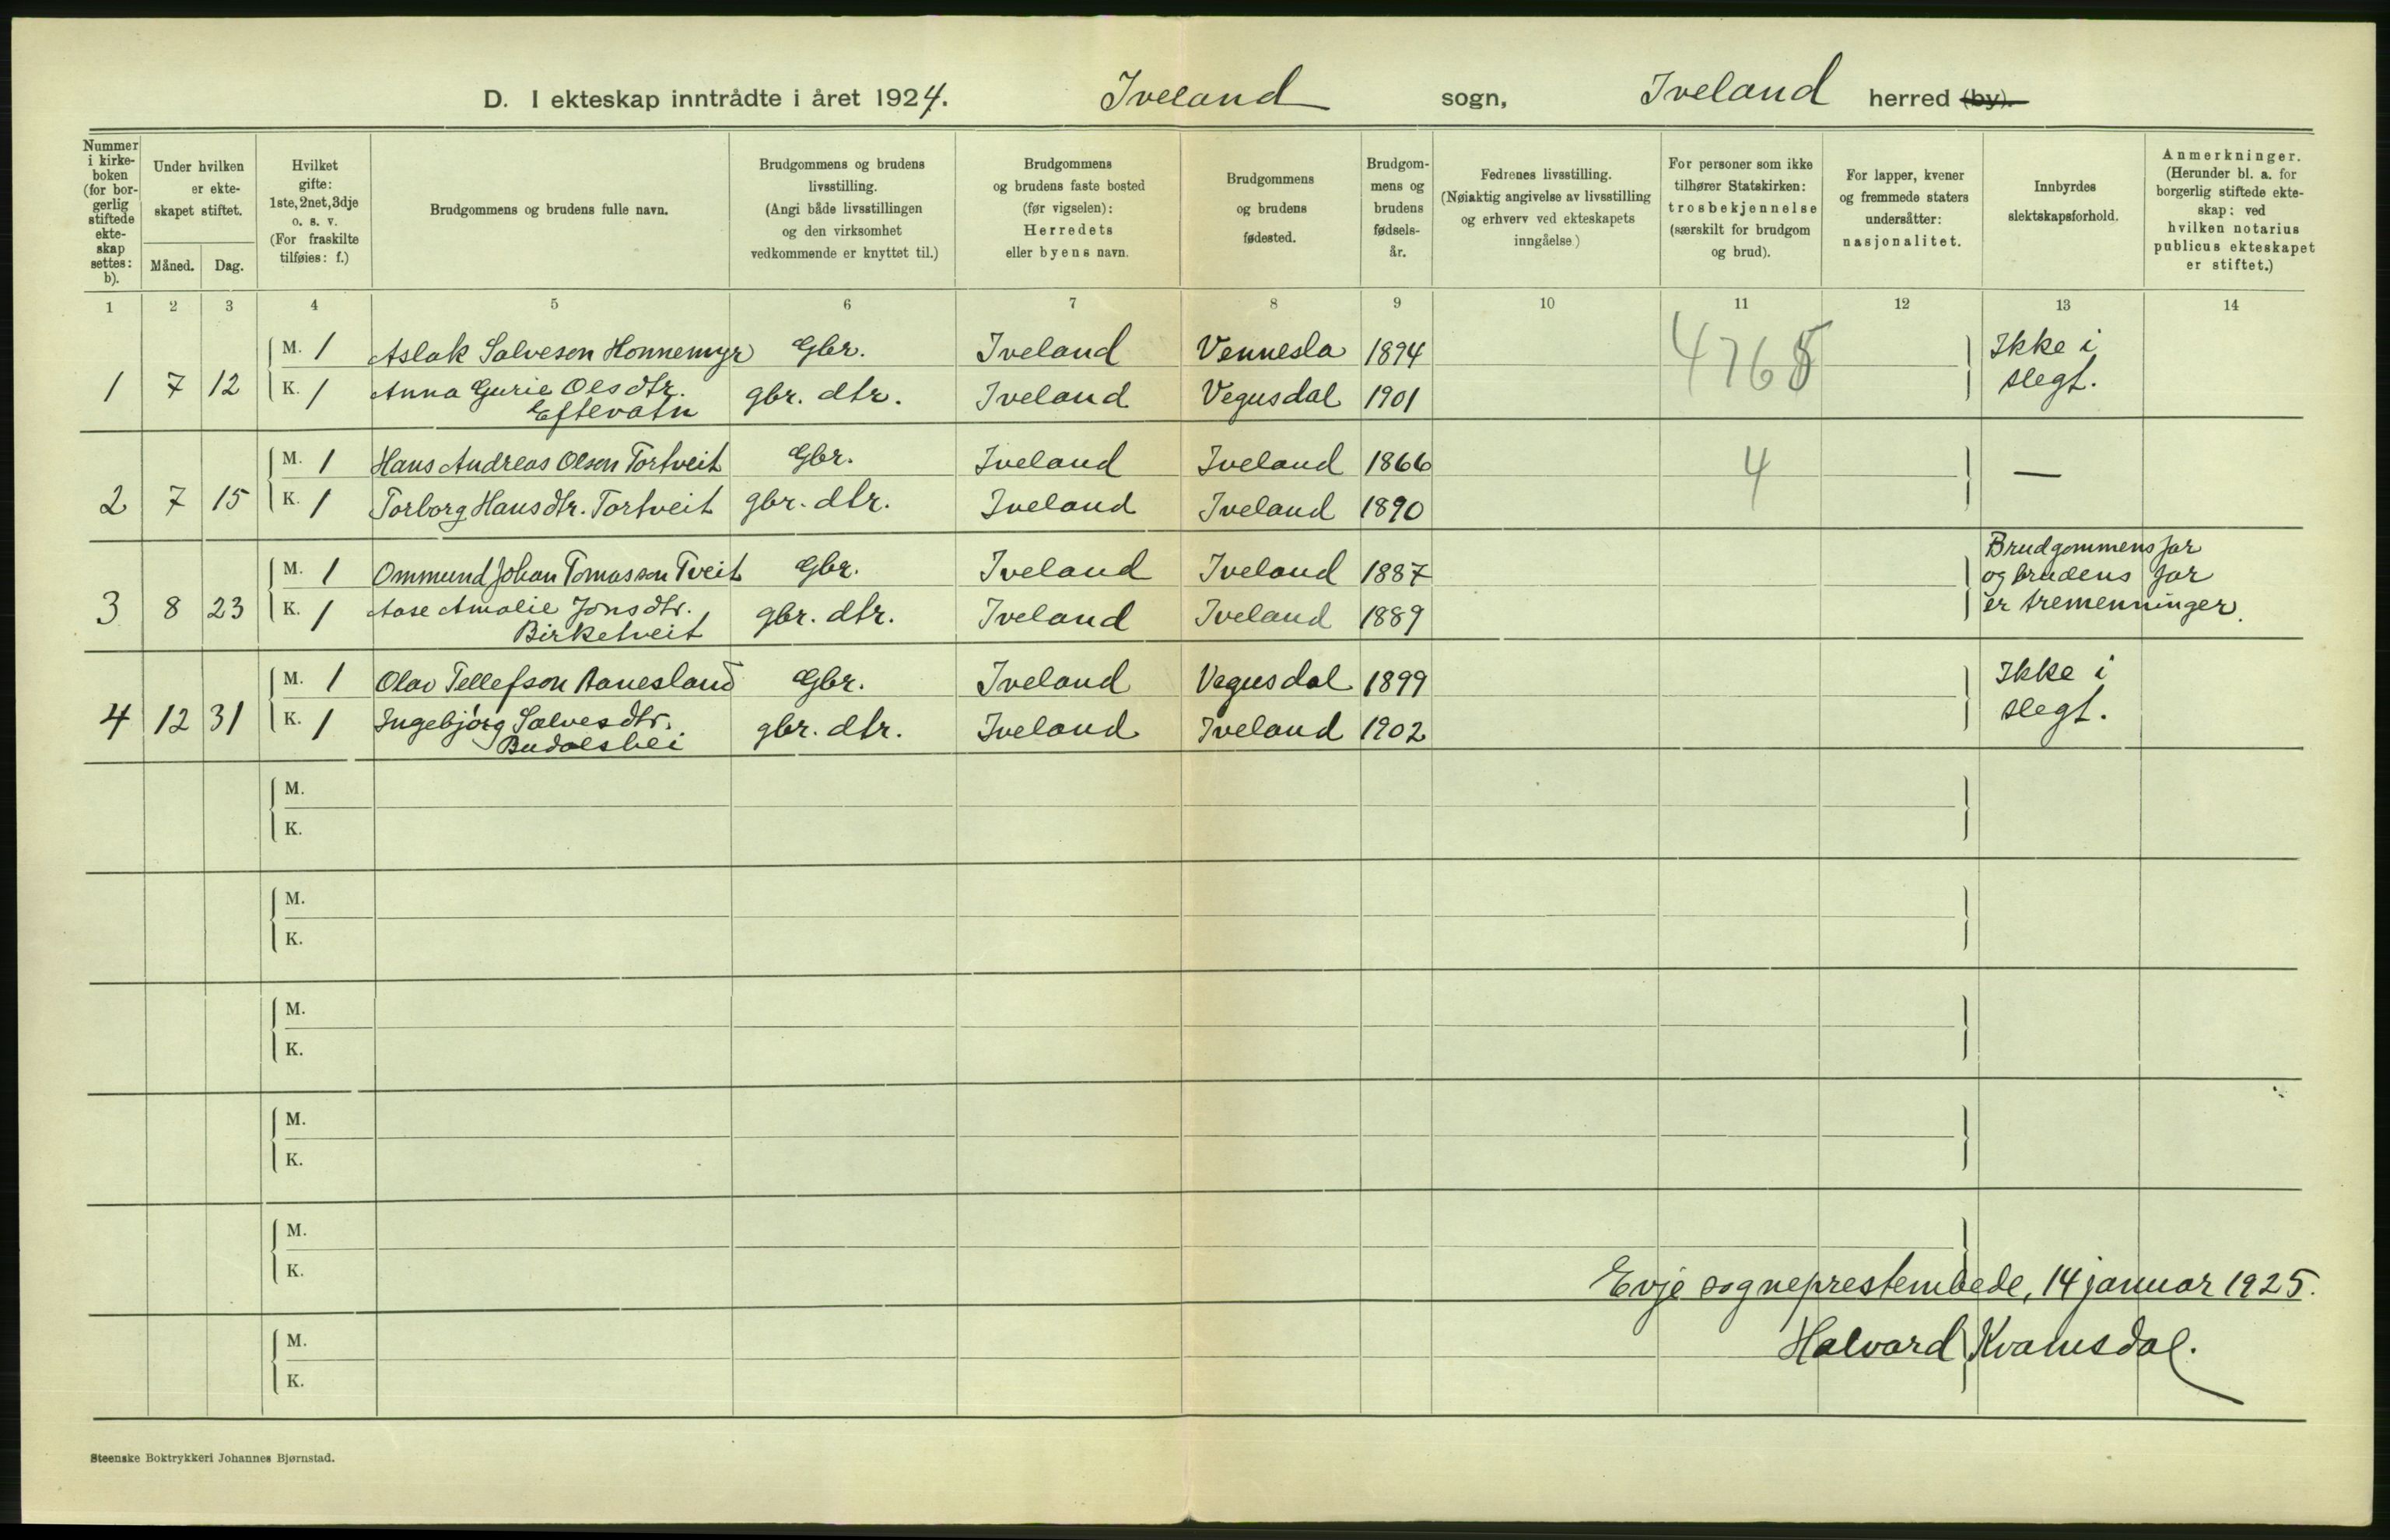 D. I ekteskap inntrådte i året 1924. Iveland sogn, Iveland herred (by).
Nummer i kirkeboken (for borgerlig stiftede ekteskap settes: b).
Under hvilken er ekteskapet stiftet.
Måned. Dag.
Hvilket gifte: 1ste, 2net, 3dje o. s. v. (For fraskilte tilføies: f.)
Brudgommens og brudens fulle navn.
Brudgommens og brudens livsstilling. (Angi både livsstillingen og den virksomhet vedkommende er knyttet til.)
Brudgommens og brudens faste bosted (før vigselen): Herredets eller byens navn.
Brudgommens og brudens fødested.
Brudgommens og brudens fødselsår.
Fedrenes livsstilling. (Nøiaktig angivelse av livsstilling og erhverv ved ekteskapets inngåelse)
For personer som ikke tilhører Statskirken: trosbekjennelse (særskilt for brudgom og brud).
For lapper, kvener og fremmede staters undersåtter: nasjonalitet.
Innbyrdes slektskapsforhold.
Anmerkninger. (Herunder bl. a. for borgerlig stiftede ekteskap: ved hvilken notarius publicus ekteskapet er stiftet.)
1 2 3 4 5 6 7 8 9 10 11 12 13 14
M. 1 Aslak Salveson Honnemyr Gbr. Iveland Vennesla 1894 4765 Ikke i
1 7 12 K. 1 Anna Gurie Olsdtr. gbr. dtr. Iveland Vegusdal 1901 slegt.
Eftevatn
M. 1 Hans Andreas Olsen Tortveit Gbr. Iveland Iveland 1866 4 —
2 7 15 K. 1 Torborg Hansdtr. Tortveit gbr. dtr. Iveland Iveland 1890
Brudgommens far
M. 1 Ommund Johan Tomasson Tveit Gbr. Iveland Iveland 1887 og brudens far
3 8 23 K. 1 Aase Amalie Jonsdtr. gbr. dtr. Iveland Iveland 1889 er tremenninger.
Birketveit
M. 1 Olav Tellefson Aanesland Gbr. Iveland Vegusdal 1899 Ikke i
4 12 31 K. 1 Ingebjørg Salvesdtr. gbr. dtr. Iveland Iveland 1902 slegt.
M.
K.
M.
K.
M.
K.
M.
K.
M.
K.
Evje sogneprestembede, 14 januar 1925.
M.
Halvard Kvamsdal.
K.
Steenske Boktrykkeri Johannes Bjørnstad.